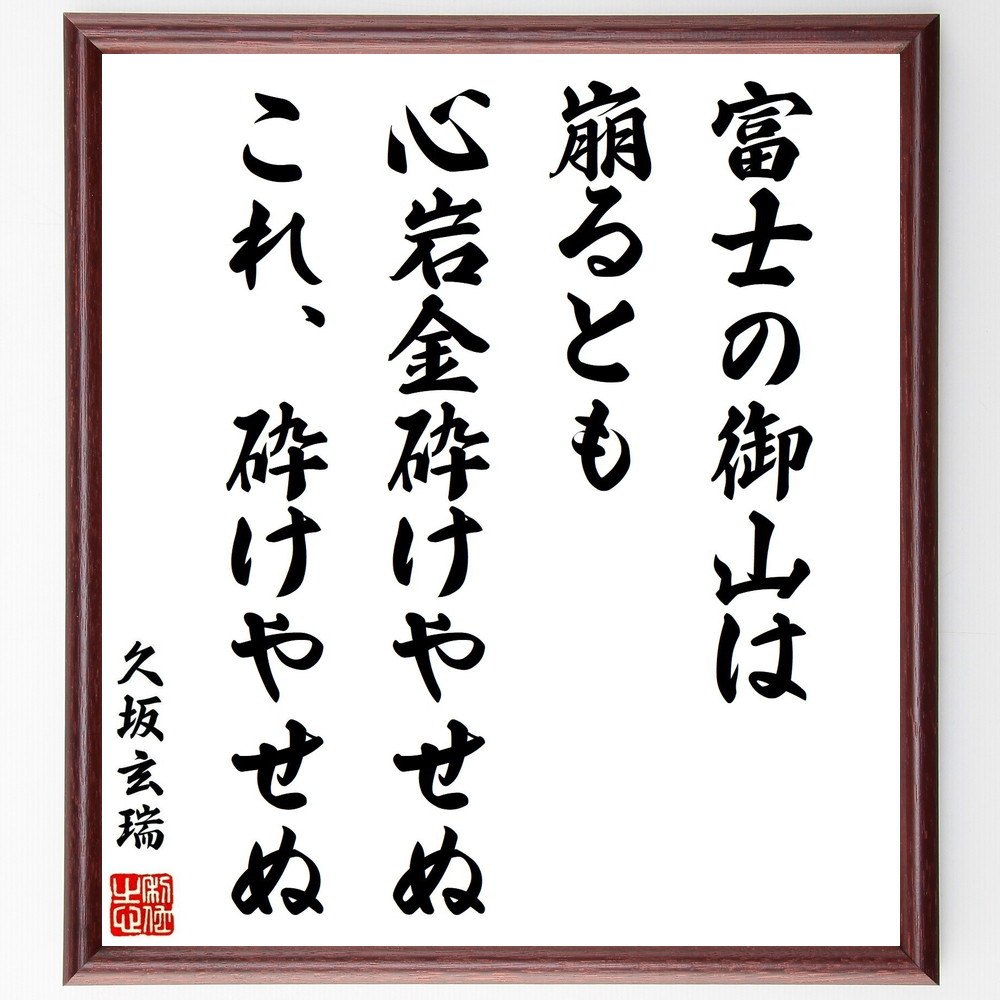 富士の御山は
崩るとも
心岩金砕けやせぬ
これ、　砕けやせぬ
久坂玄瑞